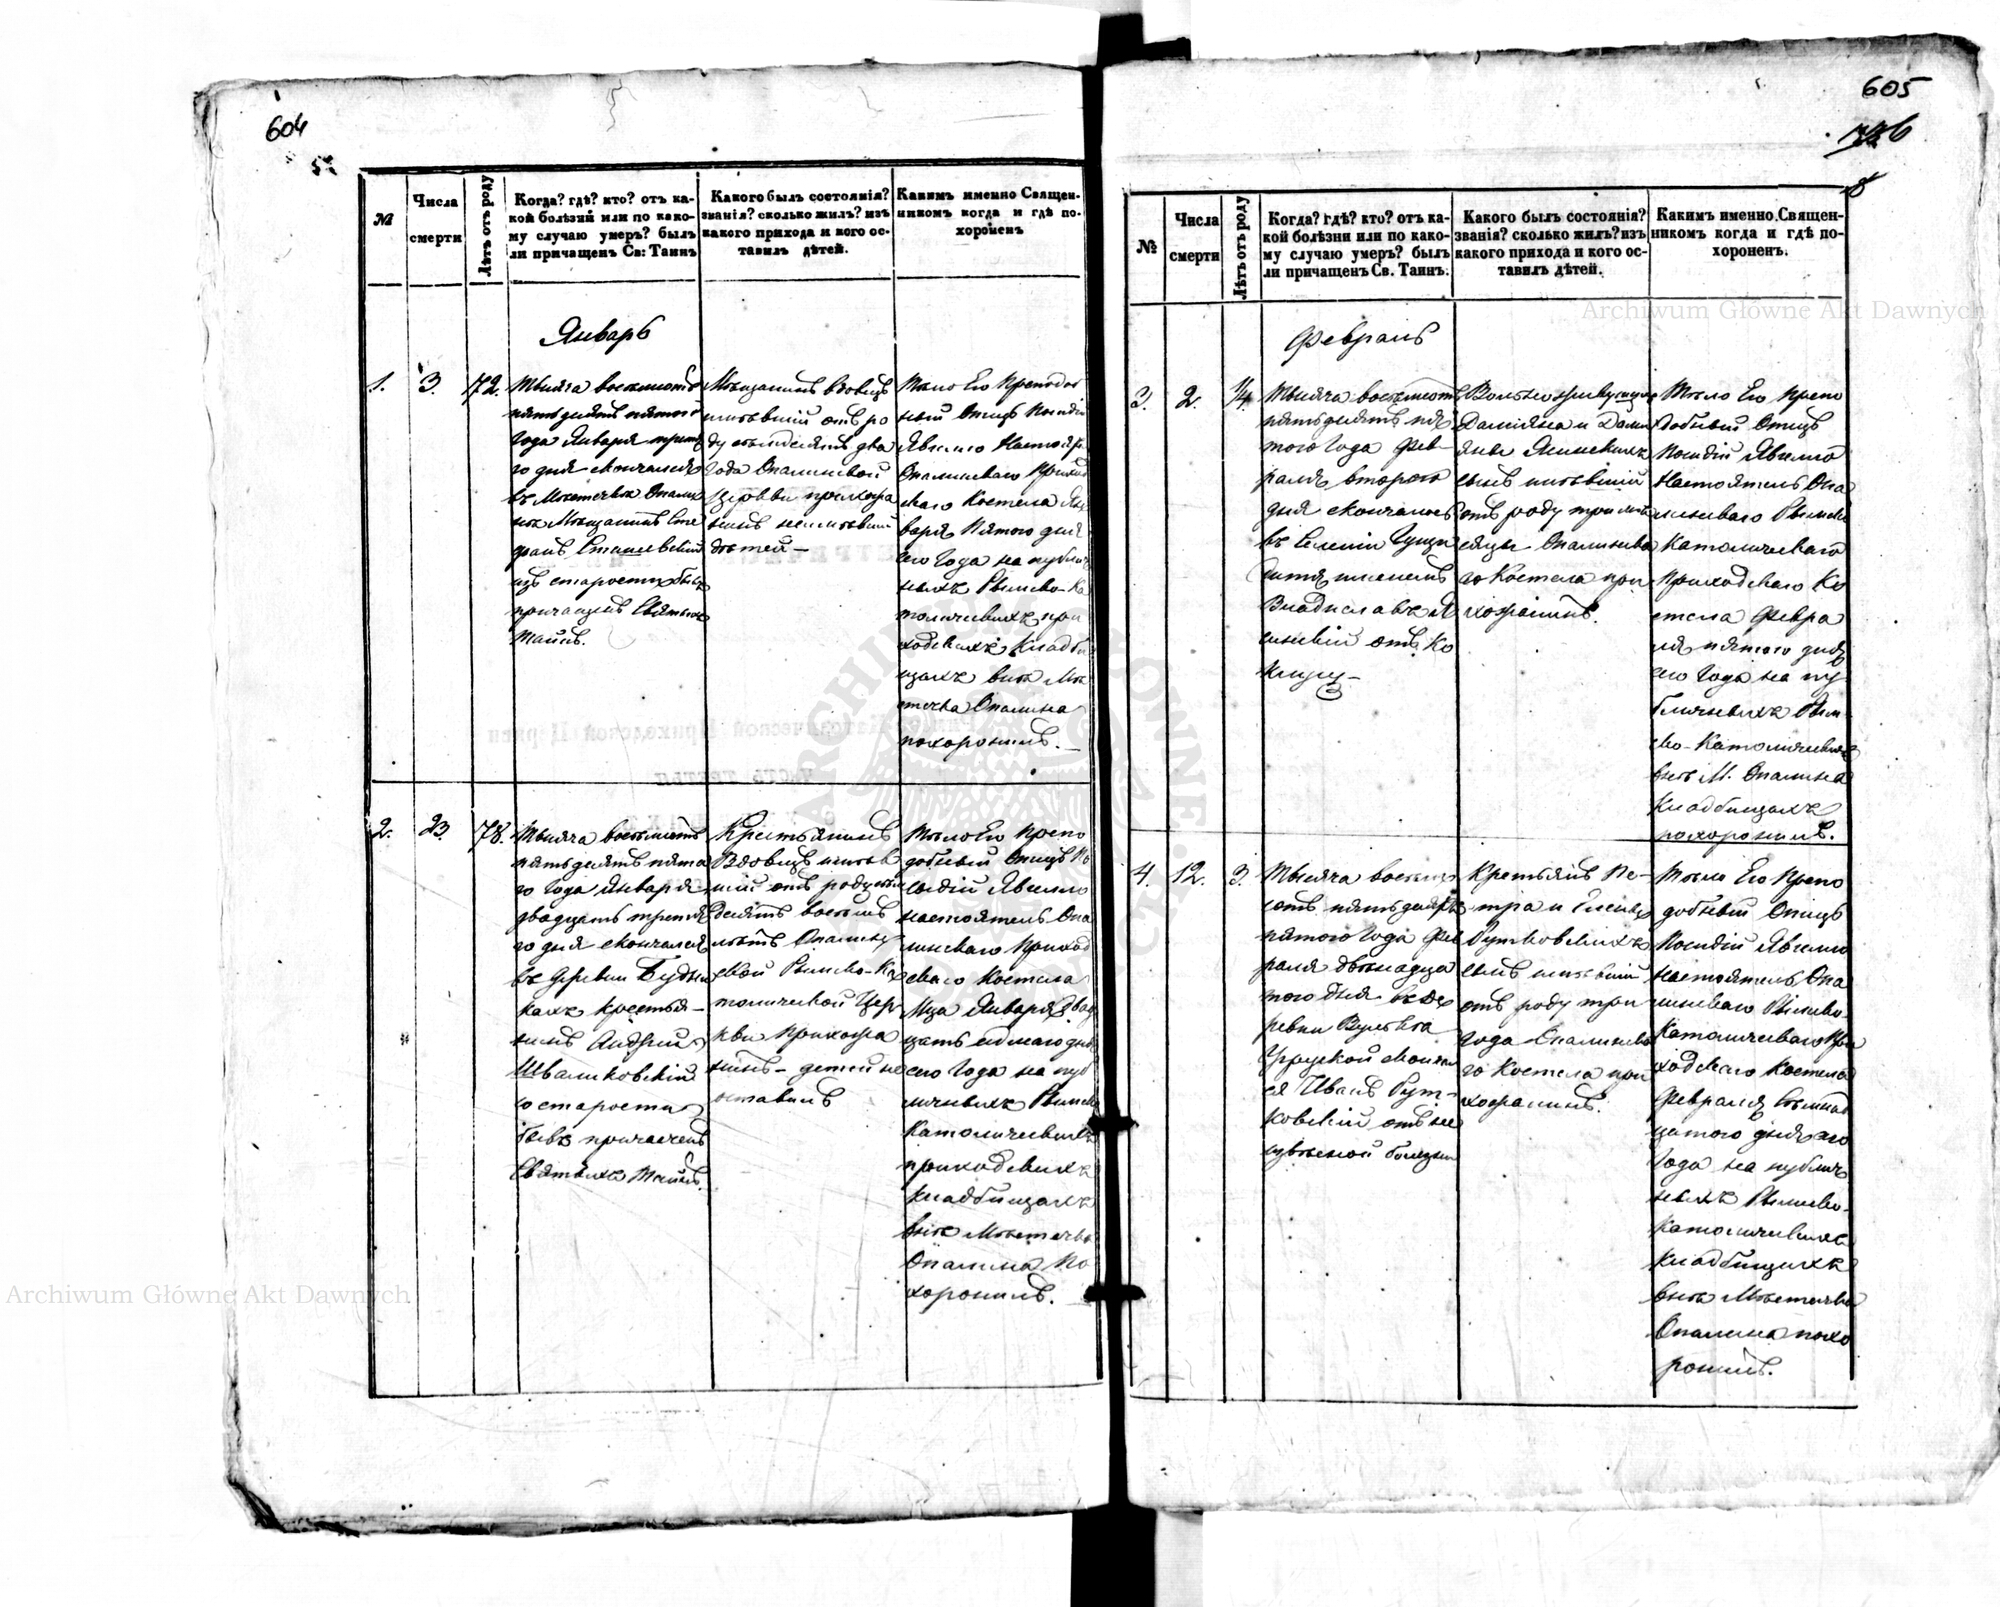 604
605
№
Числа
смерти
Лѣтъ отъ роду
Когда? гдѣ? кто? отъ ка-
кой болѣзни или по како-
му случаю умеръ? былъ
ли причащенъ Св: Таинъ
Какого былъ состоянія?
званія? сколько жилъ? изъ
какого прихода и кого ос-
тавилъ дѣтей.
Какимъ именно Священ-
никомъ когда и гдѣ по-
хороненъ
Январь
1.
3.
72.
Тысяча восемьсотъ
пятьдесятъ пятого
Года Января треть
го дня скончался
въ Мѣстечкѣ Опалин
нѣ Мѣщанинъ Сте
фанъ
изъ старости бывъ
причащенъ Святыхъ
Таинъ.
Мѣщанинъ вдовецъ
имѣвшій отъ ро
ду семьдесятъ два
Года Опалинской
Церкви прихожа
нинъ неимѣвшій
дѣтей —
Тѣло Его Преподоб
ный Отецъ
Настоятель
Опалинскаго Приход
скаго Костела Ян
варя Пятого дня
сего Года на публич
ныхъ Римско-Ка
толическихъ при
ходскихъ Кладби
щахъ внѣ Мѣ
стечка Опалина
похоронилъ. —
2.
23.
78.
Тысяча восемьсотъ
пятьдесятъ пята
го Года Января
двадцать третья
го дня скончался
въ деревни Будни
кахъ крестья-
нинъ Андрей
Шваликовскій
со старости
бывъ причащенъ
Святыхъ Таинъ.
Крестьянинъ
Вдовецъ имѣв
шій отъ роду семь
десятъ восемь
лѣтъ Опалин
ской Римско-Ка
толической Цер
кви Прихожа
нинъ – детей не
оставилъ
Тѣло Его Препо
добный Отецъ
настоятель Опа
линскаго Приход
скаго Костела
Мца Января двад
цать седмаго дня
сего Года на пуб
личныхъ Римско
Католическихъ
приходскихъ
Кладбищахъ
внѣ Мѣстечка
Опалина По
хоронилъ.
№
Числа
смерти
Лѣтъ отъ роду
Когда? гдѣ? кто? отъ ка-
кой болѣзни или по како-
му случаю умеръ? былъ
ли причащенъ Св. Таинъ.
Какого былъ состоянія?
званія? сколько жилъ? изъ
какого прихода и кого ос-
тавилъ дѣтей.
Какимъ именно Священ-
никомъ когда и гдѣ по-
хороненъ.
Февраль
3.
2.
1/4.
Тысяча восемьсотъ
пятьдесятъ пя
того Года Фев-
раля второго
дня скончалось
въ Селеніи
дитя именемъ
Владиславъ Я
синскій отъ Ко
клюшу –
Даміяна и
Ясинскихъ
сынъ имѣвшій
отъ роду три мѣ
сяцы Опалинска
го Костела при
хожанинъ.
Тѣло Его Препо
добный Отецъ
Настоятель Опа
линскаго Римско
Католическаго
Приходскаго Ко
стела Февра
ля пятого дня
сего Года на пу
бличныхъ Рим-
ско-Католическихъ
внѣ М. Опалина
Кладбищахъ
похоронилъ.
4.
12.
3.
Тысяча восемь
сотъ пятьдесятъ
пятого Года Фев
раля двѣнадца
того дня въ Де
ревни
скончал
ся Иванъ Рут-
ковскій отъ не
извѣсной болезни
Крестьянъ Пе-
тра и
Рутковскихъ
сынъ имѣвшій
отъ роду три
года Опалинска
го Костела при
хожанинъ.
Тѣло Его Препо
добный Отецъ
настоятель Опа
линскаго Римско-
Католическаго При
ходскаго Костела
Февраля семнад
цатого дня сего
Года на публич
ныхъ Римско-
Католическихъ
Кладбищахъ
внѣ Мѣстечка
Опалина похо
ронилъ.
Archiwum Główne Akt Dawnych
Archiwum Główne Akt Dawnych